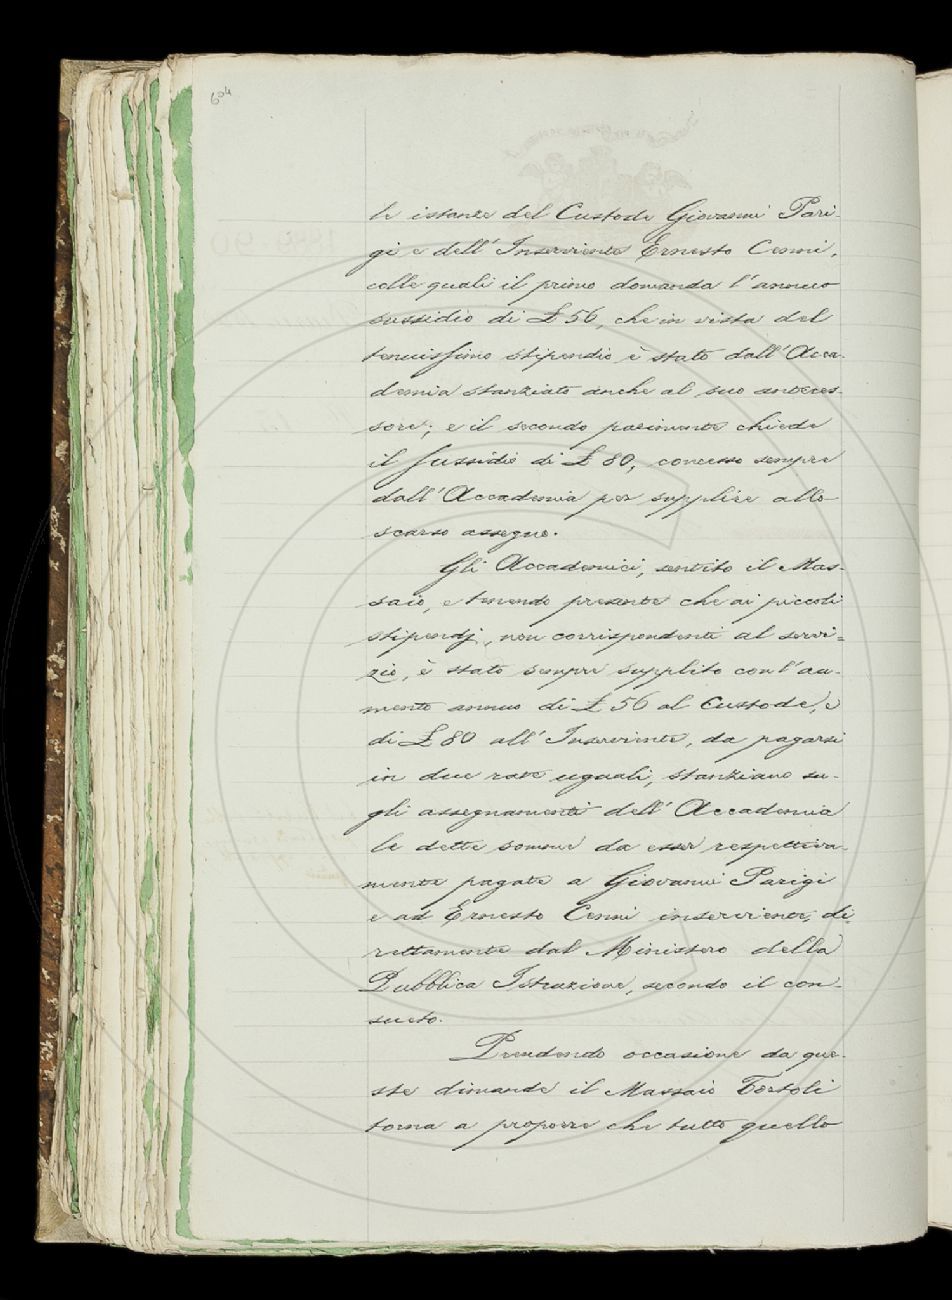 604
le istanze del Custode Giovanni Pari-
gi e dell' Inserviente Ernesto Cenni,
colle quali il primo domanda l'annuo
sussidio di £ 56, che in vista del
tenuissimo stipendio è stato dall'Acca-
demia stanziato anche al suo anteces-
sore; e il secondo parimente chiede
il sussidio di £ 80, concesso sempre
dall'Accademia per supplire allo
scarso assegno.
Gli Accademici, sentito il Mas-
saio, e tenendo presente che ai piccoli
stipendj, non corrispondenti al servi-
zio, è stato sempre supplito con l'au-
mento annuo di £ 56 al Custode, e
di £ 80 all' Inserviente, da pagarsi
in due rate uguali, stanziano su-
gli assegnamenti dell' Accademia
le dette somme da esser respettiva-
mente pagate a Giovanni Parigi
e ad Ernesto Cenni inserviente, di-
rettamente dal Ministero della
Pubblica Istruzione, secondo il con-
sueto.
Prendendo occasione da que-
ste dimande il Massaio Tortoli
torna a proporre che tutto quello